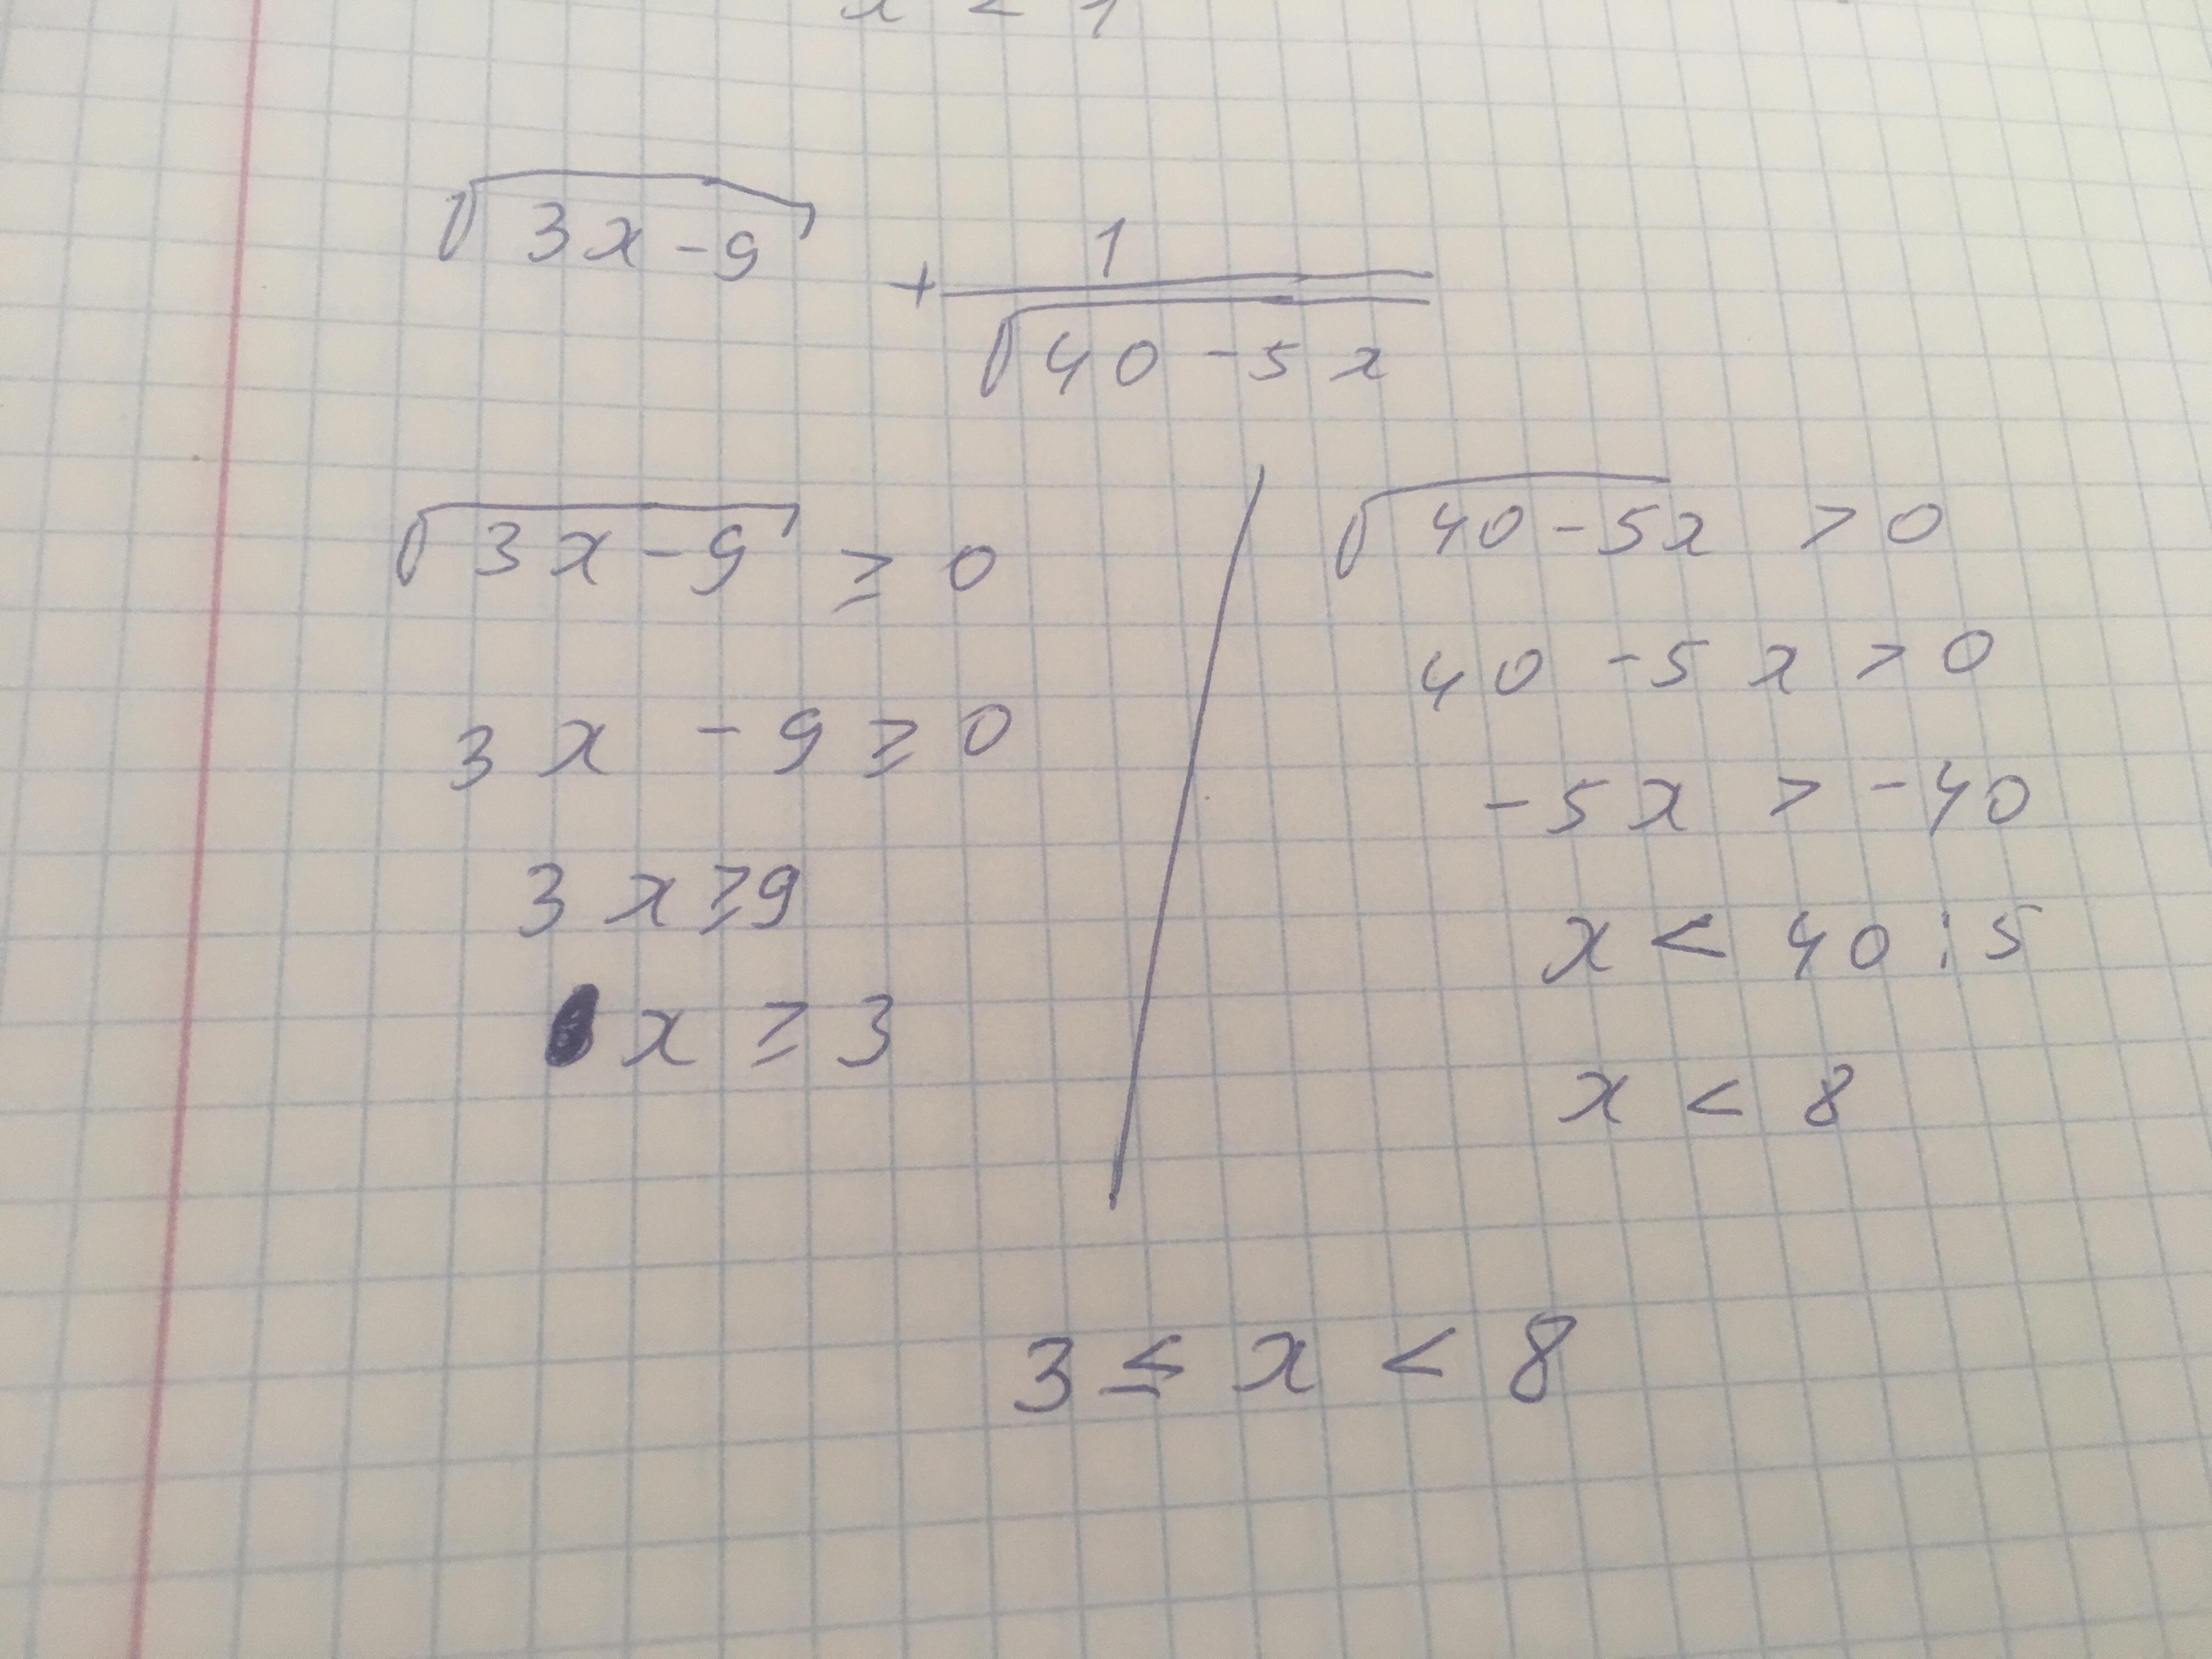 x < 1
√3x-9 + 1/√40-5x
√3x-9 ≥ 0
3x - 9 ≥ 0
3x ≥ 9
x ≥ 3
√40-5x > 0
40 - 5x > 0
-5x > -40
x < 40 : 5
x < 8
3 ≤ x < 8